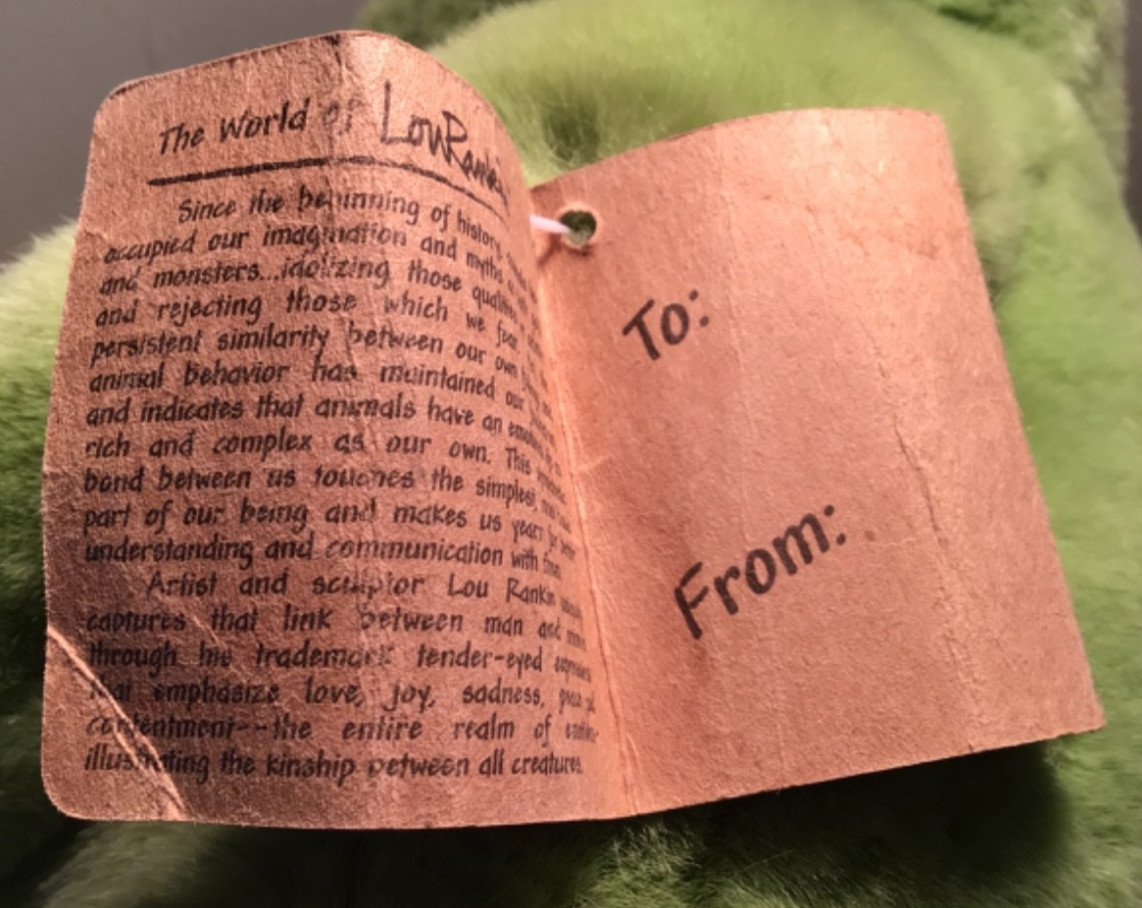 The World of LouRankin
Since the beginning of history,
occupied our imagination and myths
and monsters...idolizing those qualities
and rejecting those which we fear
persistent similarity between our own
animal behavior has maintained our
and indicates that animals have an
rich and complex as our own. This
bond between us touches the simplest,
part of our being and makes us
understanding and communication with
Artist and sculptor Lou Rankin
captures that link between man and
through his trademark tender-eyed
that emphasize love, joy, sadness,
contentment--the entire realm of
illustrating the kinship between all creatures.
To:
From: